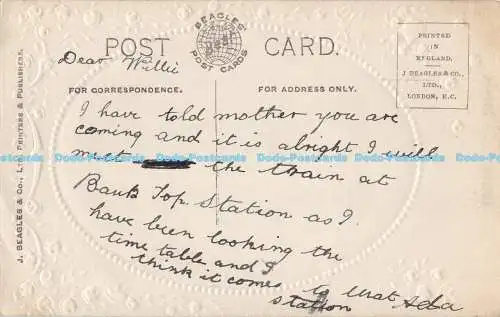 BEAGLES
POST CARDS
POST CARD.
PRINTED
IN
ENGLAND.
J BEAGLES & CO.,
LTD.,
LONDON, E.C.
J. BEAGLES & CO., LTD., PRINTERS & PUBLISHERS.
Dear Willie
FOR CORRESPONDENCE.
FOR ADDRESS ONLY.
I have told mother you are
coming and it is alright I will
meet the train at
Bank Top Station as I
have been looking the
time table and I
think it comes to that
station
Ada
Dodo-Postcards Dodo-Postcards Dodo-Postcards Dodo-Postcards Dodo-Postcards